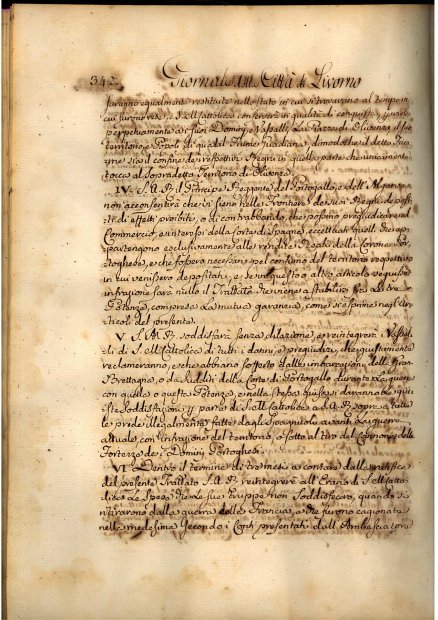 342 Giornale della Città di Livorno
saranno egualmente restituite nello stato in cui si trovavano al tempo in
cui furono rese, e S. M. Cattolica conserverà in qualità di conquista, ed unirà
perpetuamente a' suoi Dominj, e Vassalli, La Piazza di Olivenza, il suo
territorio, e Popoli di quà dal Fiume Guadiana, dimodochè il detto Fiu-
me sia il confine de' respettivi Regni in quella parte che unicamente
tocca al Sopradetto Territorio di Olivenza.
IV. S. A. R. il Principe Reggente del Portogallo, e dell'Algarve
non acconsentirà che vi sieno nelle Frontiere de' suoi Regni deposi-
ti di effetti proibiti, o di contrabbando, che possino pregiudicare al
Commercio, e interessi della Corte di Spagna, eccettuati quelli che ap-
partengono esclusivamente alle rendite Reali della Corona Por-
toghese, e che fossero necessarj pel consumo del territorio respettivo
in cui venissero depositati, e se in questo o altro articolo seguisse
infrazione sarà nullo il Trattato che ora si stabilisce fra le tre
Potenze, compresa La mutua garanzia, come si esprime negl'Ar-
ticoli del presente.
V. S. A. R. soddisfarà senza dilazione, e reintegrerà i Vassal-
li di S. M. Cattolica di tutti i danni, e pregiudizj, che giustamente
reclameranno, e che abbiano sofferto dalle imbarcazioni della Gran-
Brettagna, o da Sudditi della Corte di Portogallo durante la guerra
con quella o questa Potenza, e nella stessa guisa si daranno le giu-
ste Soddisfazioni per parte di S. M. Cattolica a S. A. R. sopra tutte
le prede illegalmente fatte dagli Spagnuoli avanti la guerra
attuale, con infrazione del territorio, o sotto al tiro del Cannone delle
Fortezze dei Dominj Portoghesi.
VI. Dentro il termine di tre mesi a contare dalla ratifica
del presente Trattato S. A. R. reintegrerà all'Erario di S. M. Catto-
lica Le Spese che le sue truppe non Soddisfecero, quando si
ritirarono dalla guerra della Francia, e che furono cagionate
nella medesima Secondo i Conti presentati dall'Ambasciatore